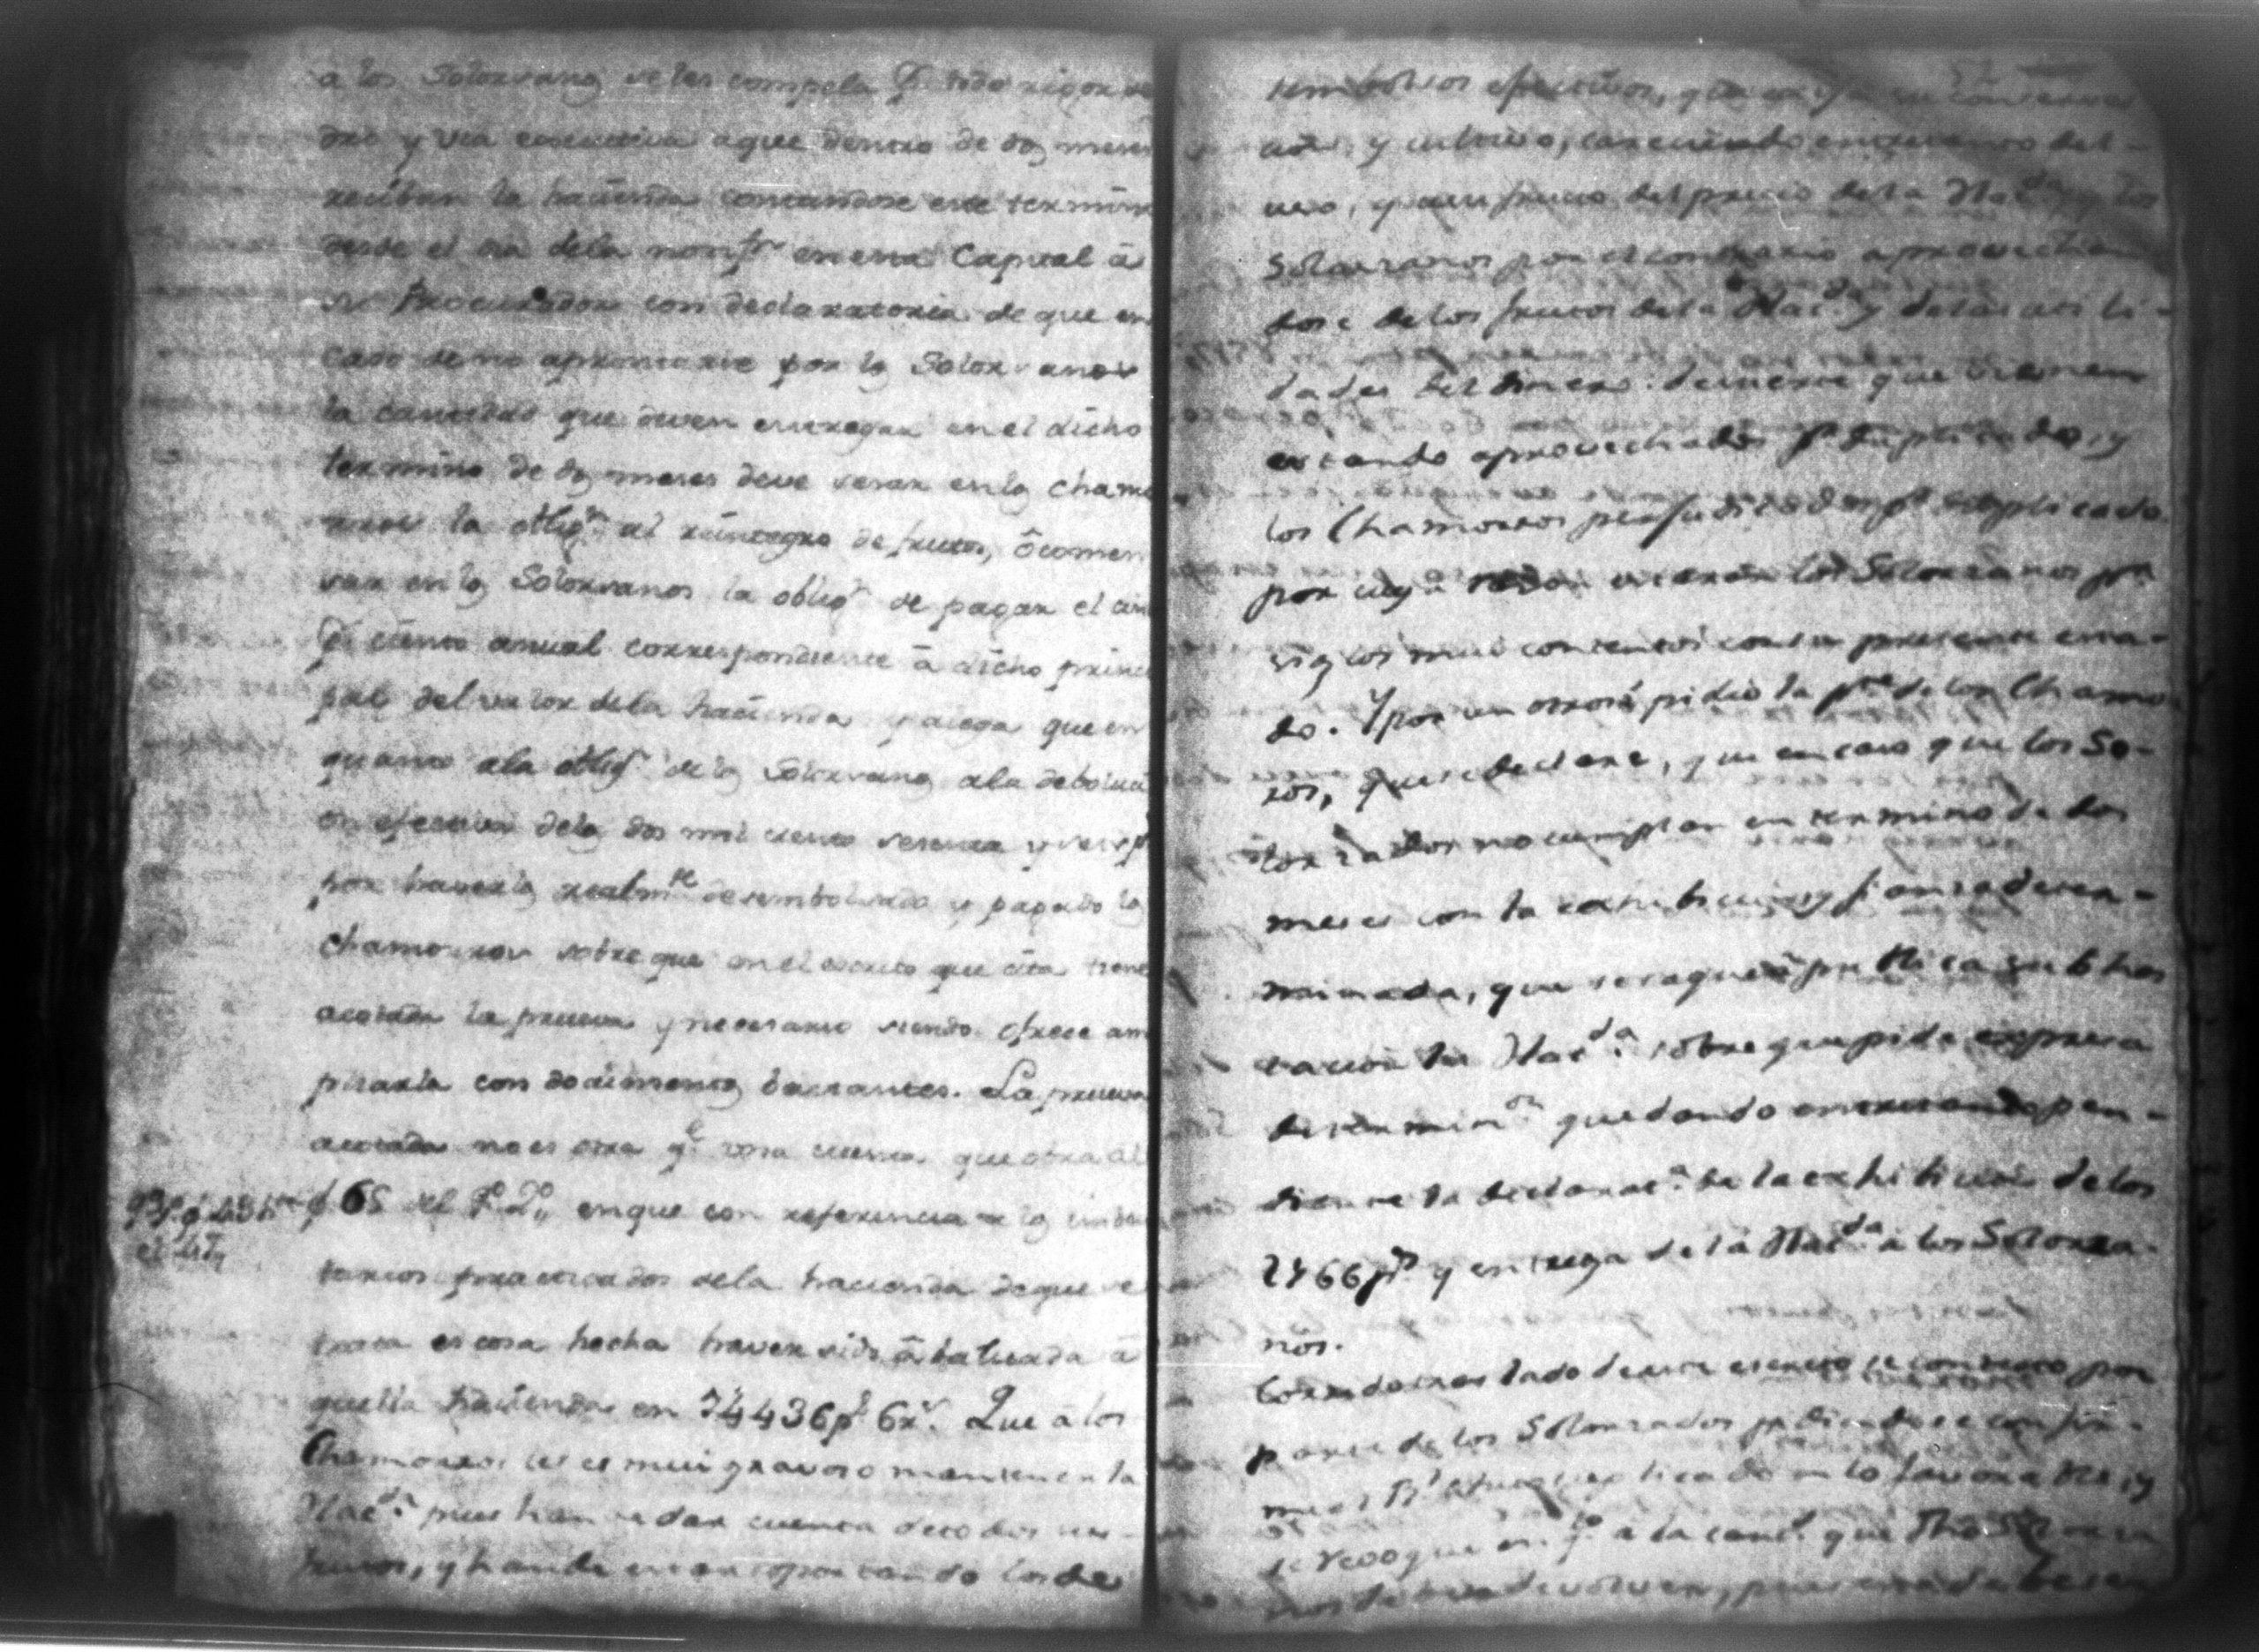 a los Solorsanos se les compela P. todo rigor de
dro y via executiva a que dentro de dos meses
reciban la hacienda contandose este termino
desde el dia dela notifn en esta Capital â
su Procurador con declaratoria de que en
caso de no aprontarse por los Solorsanos
la cantidad que deven entregar en el dicho
termino de dos meses deve sesar en los Chamo
rros la obligon al reintegro de frutos, ô comen
sar en los Solorsanos la obligon de pagar el cin
P. ciento anual correspondiente â dicho princi
pal del valor dela hacienda y alega que en
quanto ala obligon de los Solorsanos ala deboluci
on efectiva delos dos mil ciento sesenta y seis ps
por haverlos realmte desembolsado y pagado los
Chamorros sobre que en el escrito que cita tiene
acotada la prueva y necesario siendo ofrece am
pliarla con documentos bastantes. La prueva
acotada no es otra qe una cuenta que obra al
f 65 del P. 2o, en que con referencia a los inven
tarios practicados dela hacienda de que se
trata es cosa hecha haver sido âbaluada â
quella hacienda en 74436ps 6rs. Que â los
Chamorros les es mui gravoso mantener la
Hacda. pues han de dar cuenta de todos sus
frutos, y han de estar soportando los de
el lit
sembolsos efectivos, que exije su conserva
cion, y cultivo, careciendo entretanto del
uso, y usufructo del precio de la Hacda, y los
Solorzanos por el contrario aprovechan
dose de los frutos de la Hacda y de las uti li-
dades del dinero: de suerte que vienen
estando aprovechados pr duplicado, y
los Chamorros perjudicados pr duplicado
por cuya razon estarán los Solorzanos pr
siglos mui contentos con su presente esta-
do. Y por un otrosi pidió la pte de los Chamo
rros, que se declare, que en caso que los So-
lorzanos no cumplan en termino de dos
meses con la exhibicion, y fianza deter-
minada, que se saque â publica subhas
tacion la Hacda. sobre que pide expresa
determinon quedando entretanto pen-
diente la declaracn. de la exhibicion de los
2166ps. y entrega de la Hacda. a los Solorza-
nos.
Corrido traslado de este escrito se contesto por
parte de los Solorzanos pidiendo se confir-
me el suplicado en lo favorable, y
se revoque en qto a la cantd. que